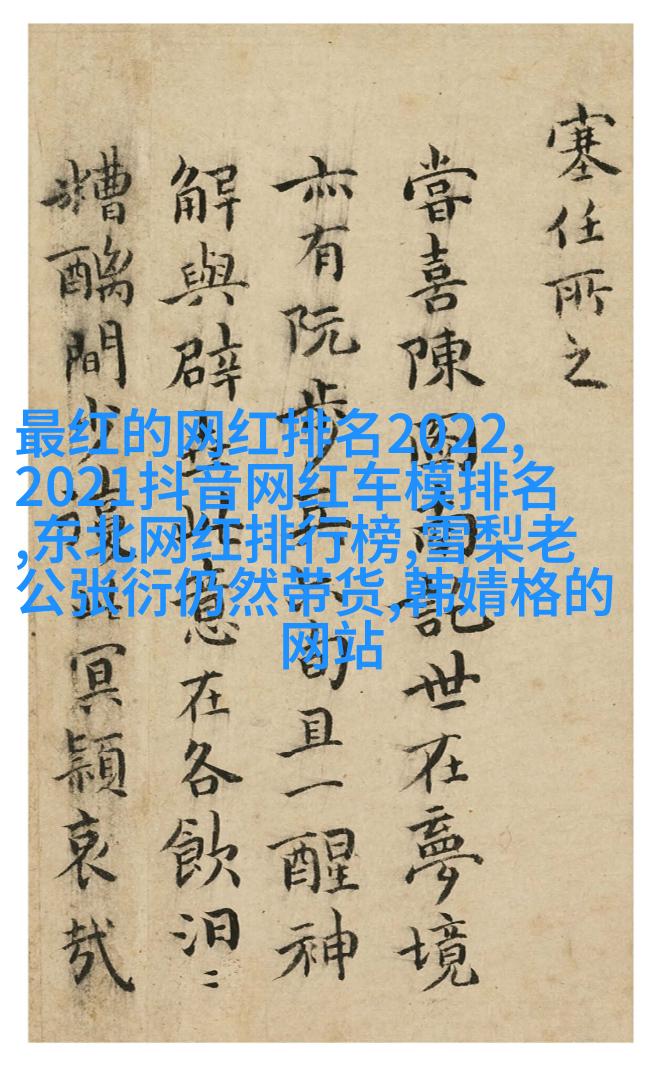 塞任所之
嘗喜陳圖南託世在夢境
亦有阮步兵旬且一醒神
解與辟此意在各飲汩〻
糟醨間少冥穎哀哉
最红的网红排名2022,
2021抖音网红车模排名
,东北网红排行榜,雪梨老
公张衍仍然带货,韩婧格的
网站